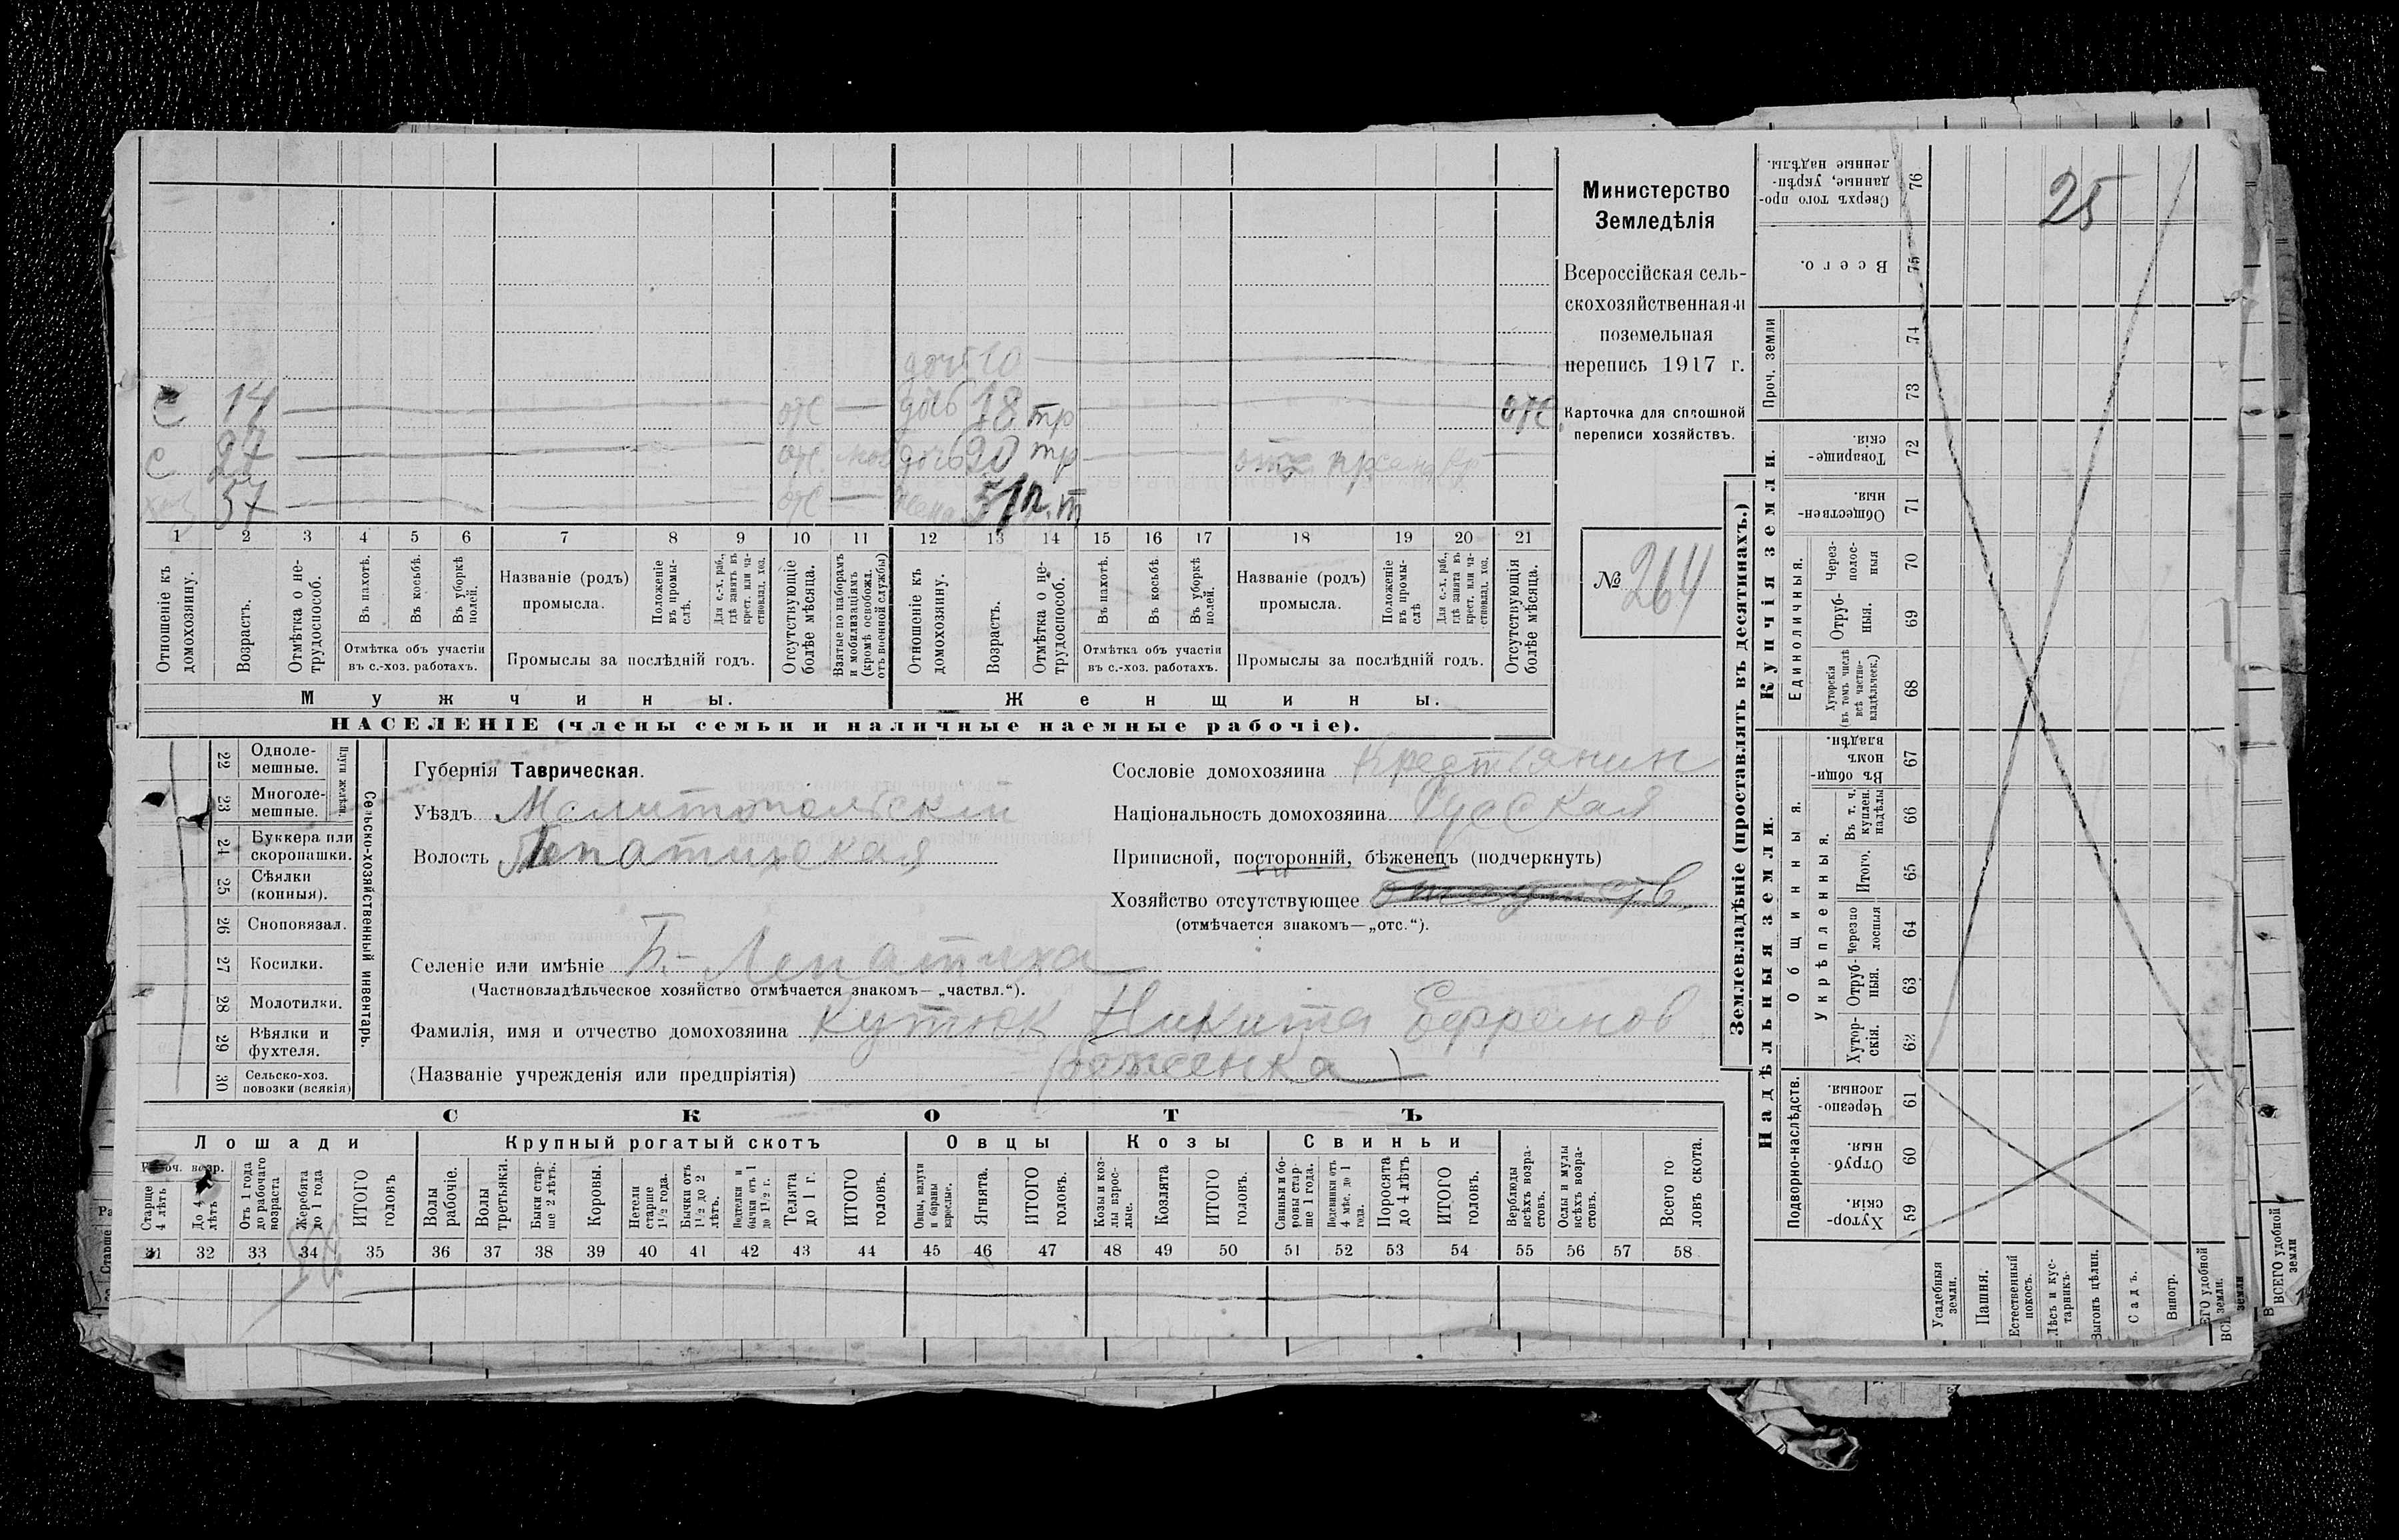 дочь 10
С 14 отс дочь 18 тр отс.
С 27 отс. дочь 20 тр
хоз 57 отс жена 51 п. т
1 2 3 4 5 6 7 8 9 10 11 12 13 14 15 16 17 18 19 20 21
Отношеніе къ домохозяину.
Возрастъ.
Отмѣтка о не-трудоспособ.
Въ пахотѣ.
Въ косьбѣ.
Въ уборкѣ полей.
Отмѣтка объ участіи
въ с.-хоз. работахъ.
Названіе (родъ)
промысла.
Положеніе въ промы-слѣ.
Для с.-х. раб., гдѣ занятъ въ крест. или ча-стновлад. хоз.
Промыслы за послѣдній годъ.
Отсутствующіе болѣе мѣсяца.
Взятые по наборамъ и мобилизаціямъ (кромѣ освобожд. отъ военной службы)
Отношеніе къ домохозяину.
Возрастъ.
Отмѣтка о не-трудоспособ.
Въ пахотѣ.
Въ косьбѣ.
Въ уборкѣ полей.
Отмѣтка объ участіи
въ с.-хоз. работахъ.
Названіе (родъ)
промысла.
Положеніе въ промы-слѣ
Для с.-х. раб., гдѣ занята въ крест. или ча-стновлад. хоз.
Промыслы за послѣдній годъ.
Отсутствующія болѣе мѣсяца.
Мужчины.
Женщины.
НАСЕЛЕНІЕ (члены семьи и наличные наемные рабочіе).
Министерство
Земледѣлія
Всероссійская сель-
скохозяйственная и
поземельная
перепись 1917 г.
Карточка для сплошной
переписи хозяйствъ.
№ 264
22 Одноле-мешные.
23 Многоле-мешные.
Плуги желѣзн.
24 Буккера или скоропашки.
25 Сѣялки (конныя).
26 Сноповязал.
27 Косилки.
28 Молотилки.
29 Вѣялки и фухтеля.
30 Сельско-хоз. повозки (всякія)
Сельско-хозяйственный инвентарь.
Губернія Таврическая.
Уѣздъ Мелитопольскій
Волость Лепатихская
Сословіе домохозяина Крестьянин
Національность домохозяина Руская
Приписной, посторонній, бѣженецъ (подчеркнуть)
Хозяйство отсутствующее
(отмѣчается знакомъ—„отс.“).
Селеніе или имѣніе Б.-Лепатиха
(Частновладѣльческое хозяйство отмѣчается знакомъ—„частвл.“).
Фамилія, имя и отчество домохозяина Кутюк Никита Ефранов
(Названіе учрежденія или предпріятія) (беженка)
СКОТЪ
Лошади
Крупный рогатый скотъ
Овцы
Козы
Свиньи
Рабоч. возр.
Старше 4 лѣтъ
До 4 лѣтъ
Отъ 1 года до рабочаго возраста
Жеребята до 1 года
ИТОГО головъ
Волы рабочіе.
Волы третьяки.
Быки стар-ше 2 лѣтъ.
Коровы.
Нетели старше 1½ года.
Бычки отъ 1½ до 2 лѣтъ.
Подтелки и бычки отъ 1 до 1½ г.
Телята до 1 г.
ИТОГО головъ.
Овцы, валухи и бараны взрослые.
Ягнята.
ИТОГО головъ.
Козы и коз-лы взрос-лые.
Козлята
ИТОГО головъ.
Свиньи и бо-ровы стар-ше 1 года.
Подсвинки отъ 4 мѣс. до 1 года.
Поросята до 4 лѣтъ
ИТОГО головъ.
Верблюды всѣхъ возра-стовъ.
Ослы и мулы всѣхъ возра-стовъ.
Всего го ловъ скота.
31 32 33 34 35 36 37 38 39 40 41 42 43 44 45 46 47 48 49 50 51 52 53 54 55 56 57 58
Землевладѣніе (проставлять въ десятинахъ.)
Купчія земли.
Надѣльныя земли.
Сверхъ того про-данные, укрѣп-ленные надѣлы. 76
25
Всего. 75
Проч. земли 74
73
Товарище-скія. 72
Обществен-ныя. 71
Единоличныя.
Через-полос-ныя 70
Отруб-ныя. 69
Хуторскія (въ томъ числѣ всѣ частно-владѣльческ.) 68
Общинныя.
Въ общи-номъ владѣн. 67
Укрѣпленныя.
Въ т. ч. куплен. надѣлы 66
Итого. 65
Черезпо лосныя 64
Отруб-ныя. 63
Хутор-скія. 62
Подворно-наслѣдств.
Черезпо-лосныя. 61
Отруб-ныя. 60
Хутор-скія. 59
Усадебныя земли.
Пашня.
Естественный покосъ.
Лѣсъ и кус-тарникъ.
Выгонъ цѣлин.
Садъ.
Виногр.
ВСЕГО удобной земли.
ВСЕГО удобной земли